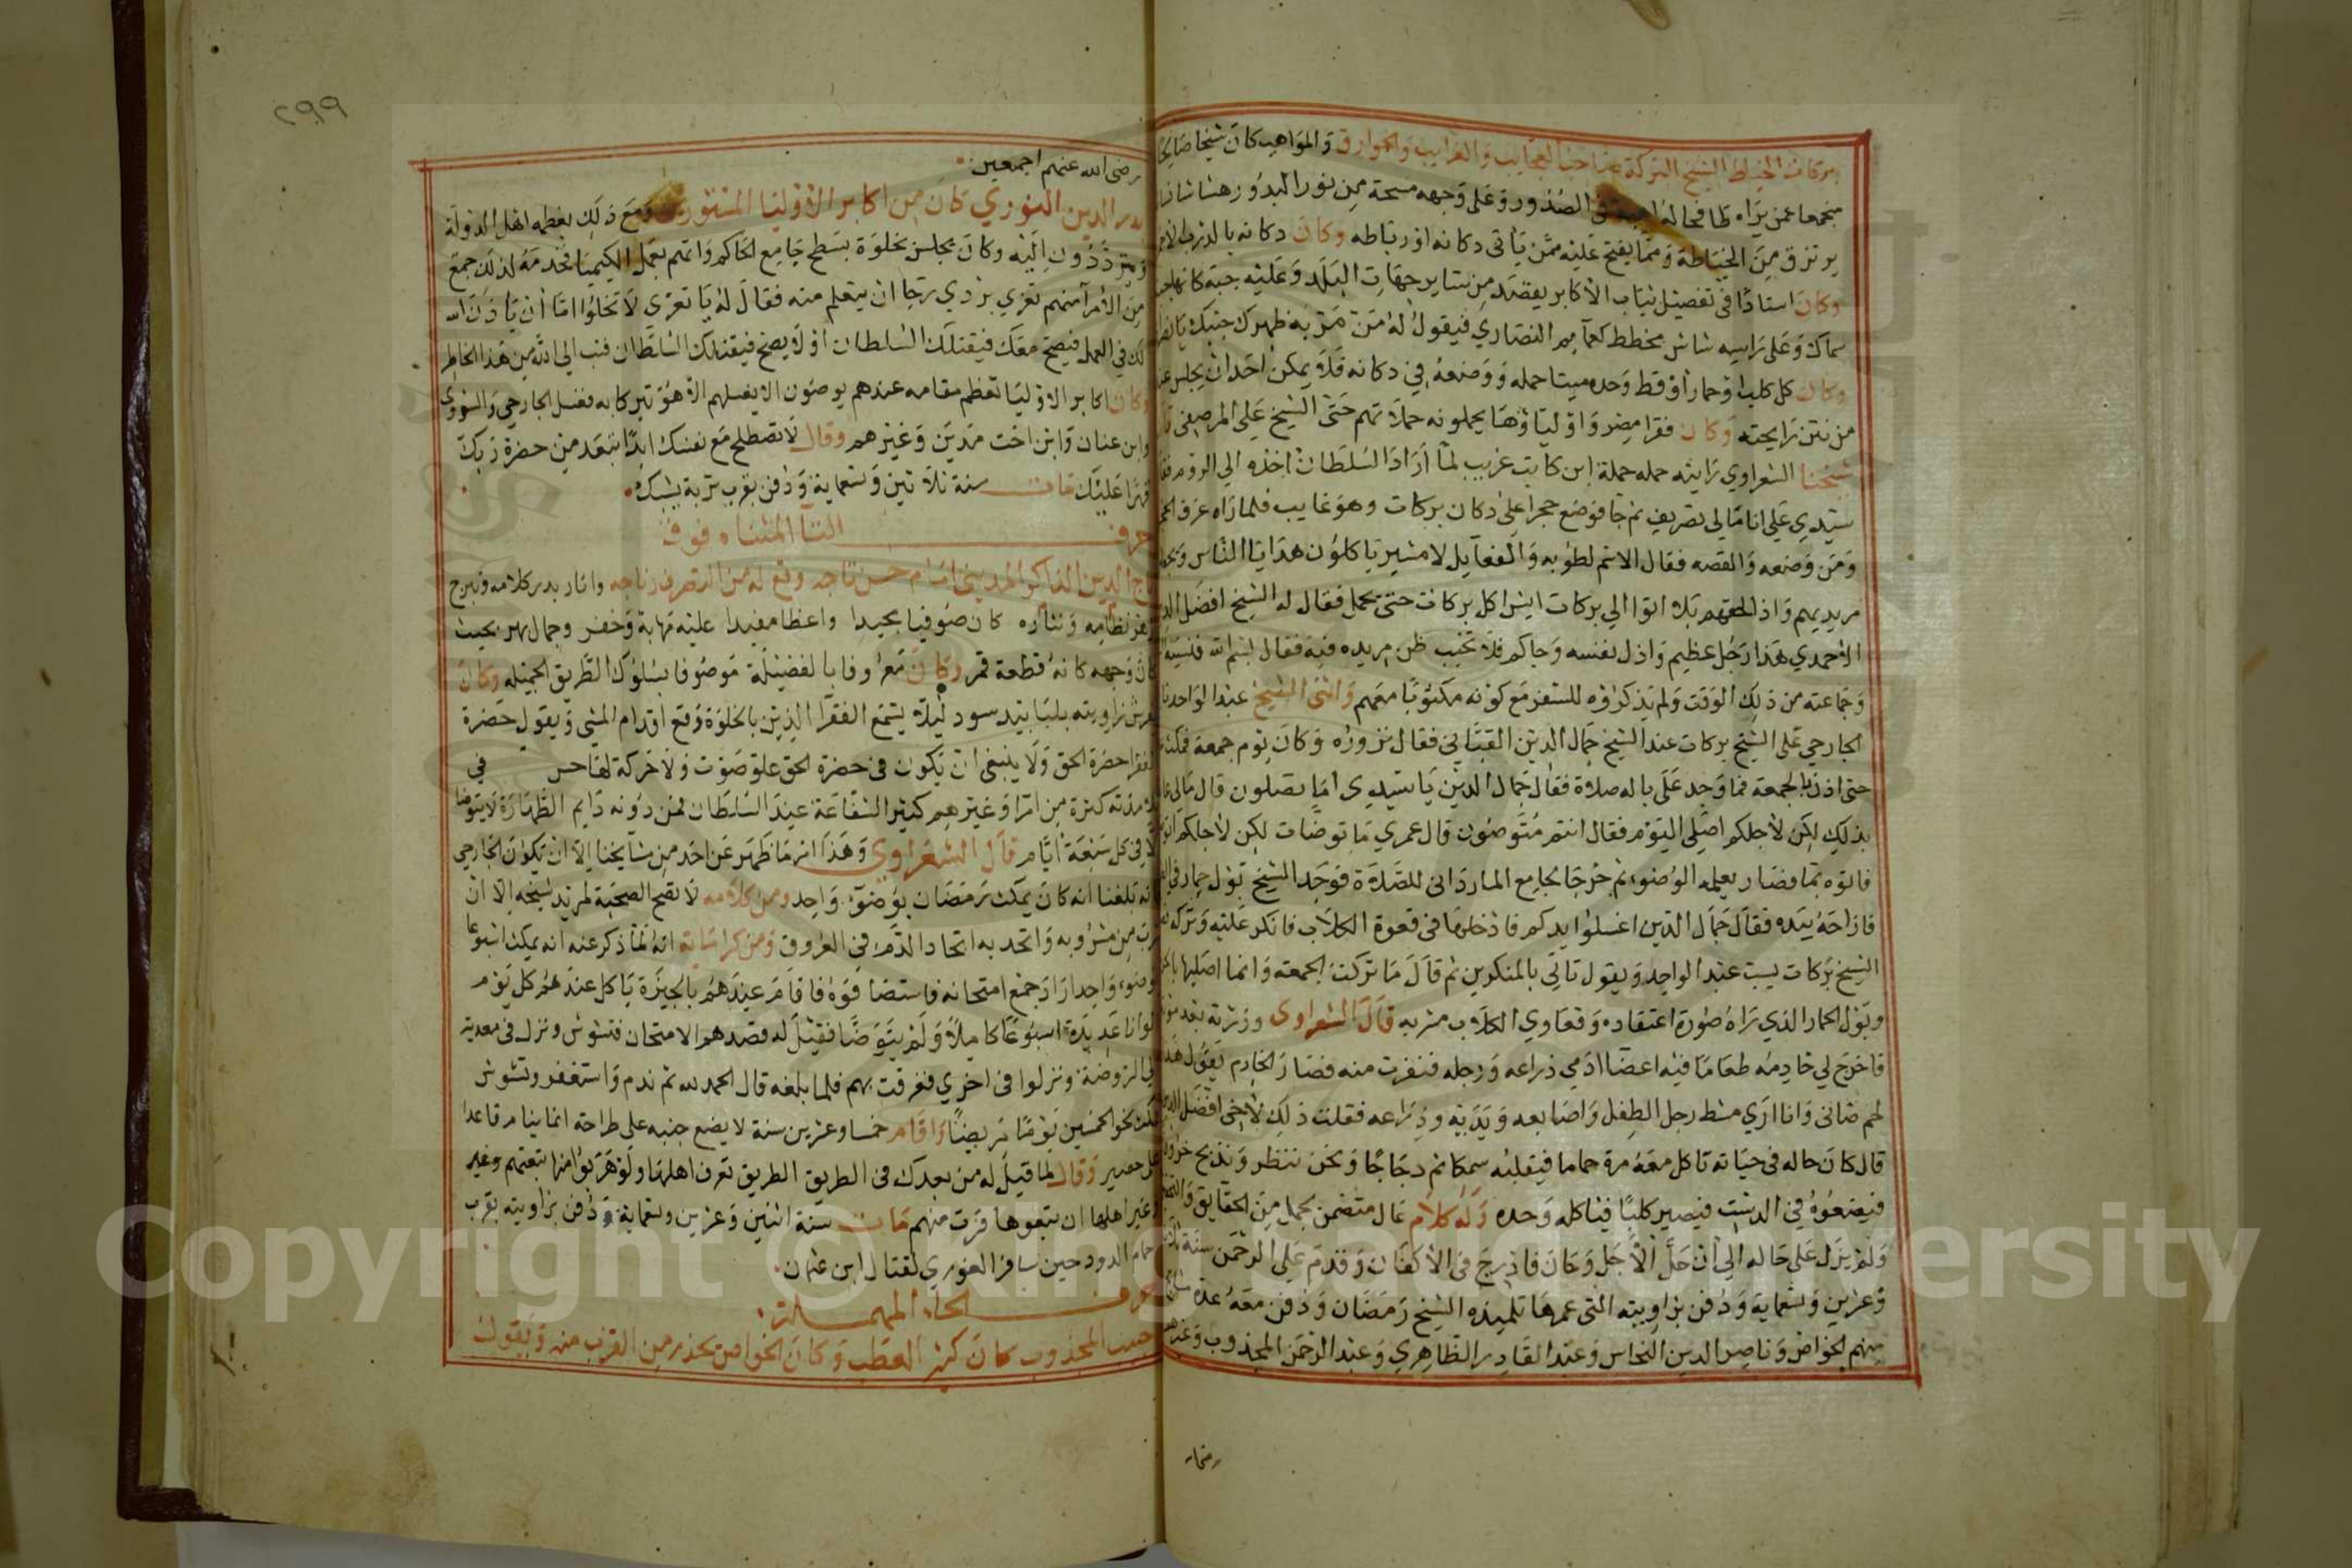 بركات الخياط الشيخ البركة صاحب العجايب والغرايب والخوارق والمواهب كان شيخا صالحا
منجمعا عمن يراه ظافحا له اهيبة في الصدور وعلى وجهه مسحة من نور البدور هشاشا
يرتزق من الخياطة ومما يفتح عليه ممن ياتى دكانه اورباطه وكان دكانه بالدرب
وكان استاذا فى تفصيل ثياب الاكابر يقصد من ساير جهات البلد وعليه جبة كانها
سماك وعلى راسه شاش مخطط كعمايم النصارى فيقول له من مر به ظهرك جنبك يا
وكان كل كلب او حمار او قط وحده ميتا حمله ووضعه في دكانه فلا يمكن احد ان يجلس عنده
من نتن رايحته وكان فقرا مصر واوليا وها يحملونه حملاتهم حتى الشيخ على المرصفى قال
شيخنا الشعراوي رايته حمله حملة ابن كاتب غريب لما اراد السلطان اخذه الي الروم فقال
سيدي على انا مالى تصريف ثم جا فوضع حجرا على دكان بركات وهو غايب فلما راه عرف
ومن وضعه والقصه فقال الاسم لطوبه والفعايل لامشير ياكلون هدايا الناس
مريديهم واذ الحقهم بلا اتوا الي بركات ايش اكل بركات حتى يحمل فقال له الشيخ افضل الدين
الاحمدي هذا رجل عظيم واذل نفسه وجاكم فلا تخيب ظن مريده فيه فقال بسم الله
وجماعته من ذلك الوقت ولم يذكروه للسفر مع كونه مكتوبا معهم واثنى الشيخ عبد الواحد
الجارحي على الشيخ بركات عند الشيخ جمال الدين فقال نزوره وكان يوم جمعة فمكث
حتى اذن بالجمعة فما وجد على باله صلاة فقال جمال الدين يا سيدى اما تصلون قال مالى
بذلك لكن لاجلكم اصلى اليوم فقال انتم متوضون قال عمري ما توضات لكن لاجلكم
فاتوه بما فصار يعلمه الوضوء ثم خرجا لجامع المارداني للصلاة فوجد الشيخ بول حمار في
فازاحه بيده فقال جمال الدين اغسلوا يدكم فادخلها فى قعوة الكلاب فانكر عليه وتركه
الشيخ بركات يسب عبد الواحد ويقول تاتى بالمنكرين ثم قال ما تركت الجمعه وانما اصليها
وبول الحمار الذي راه صورة اعتقاده وقعاوي الكلاب مشربه قال الشعراوى وزرته بعد
فاخرج لي خادمه طعاما فيه اعضا ادمي ذراعه ورجله فنفرت منه فصار الخادم يقول هذا
لحم ضانى وانا ارى مشط رجل الطفل واصابعه ويديه وذراعه فقلت ذلك لاخى افضل الدين
قال كان حاله فى حياته تاكل معه مرة حماما فيقلبه سمكا ثم دجاجا ونحن ننظر ونذبح خروفا
فيضعوه في الدست فيصير كلبا فياكله وحده وله كلام عال متضمن لجمل من الحقايق
ولم يزل على حاله الي ان حل الاجل وحان فادرج فى الاكفان وقدم على الرحمن سنة
وعشرين وتسعماية ودفن بزاويته التى عمرها تلميذه الشيخ رمضان ودفن معه عدة
منهم الخواص وناصر الدين النحاس وعبد القادر الظاهري وعبد الرحمن المجذوب وغيرهم
رضى
رضى الله عنهم اجمعين
بدر الدين النوري كان من اكابر الاوليا المستورين ومع ذلك يعظمه اهل الدولة
ويترددون اليه وكان يجلس بخلوة بسطح جامع الحاكم واتهم بعمل الكيميا فخدمه لذلك جمع
من الامرا منهم تغري بردي رجا ان يتعلم منه فقال له يا تغرى لا تخلوا اما ان ياذن الله
لك في العمل فيصح معك فيقتلك السلطان او لا يصح فيقتلك السلطان فتب الي الله من هذا الخاطر
وكان اكابر الاوليا تعظم مقامه عندهم يوصون الا يغسلهم الا هو تبركا به فغسل الجارحي والنووي
وابن عنان وابن اخت مدين وغيرهم وقال لا تصطلح مع نفسك ابدا تبعد من حضرة ربك
قهرا عليك مات سنة ثلاثين وتسعماية ودفن بقرب تربة يشبك
حرف التا المثناه فوق
تاج الدين الذاكر المدينى امام حسن تاجه وقع له من التصرف نتاجه وانار بدر كلامه وتبرج
زهر نظامه ونثاره كان صوفيا مجيدا واعظا مفيدا عليه مهابة وخفر وجمال بهر بحيث
كان وجهه كانه قطعة قمر وكان معروفا بالفضيلة موصوفا بسلوك الطريق الجميله وكان
فرش زاويته بلبابيد سود ليلا يسمع الفقرا الذين بالخلوة وقع اقدام المشي ويقول حضرة
الفقرا حضرة الحق ولا ينبغى ان يكون فى حضرة الحق علو صوت ولا حركة لها حس في
تلامذته كثرة من امرا وغيرهم كثير الشفاعة عند السلطان فمن دونه دايم الطهارة لا يتوضا
الا في كل سبعة ايام قال الشعراوي وهذا امر ما ظهر عن احد من مشايخنا الا ان يكون الجارحي
فانه بلغنا انه كان يمكث رمضان بوضوء واحد ومن كلامه لا تصح الصحبة لمريد شيخه الا ان
شرب من مشروبه واتحد به اتحاد الدم فى العروق ومن كراماته انه لما ذكر عنه انه يمكث اسبوعا
بوضوء واحد اراد جمع امتحانه فاستضافوه فاقام عندهم بالجيزة ياكل عندهم كل يوم
الوانا عديدة اسبوعا كاملا ولم يتوضا فقيل له قصدهم الامتحان فتشوش ونزل فى معدية
الي الروضة ونزلوا فى اخري فغرقت بهم فلما بلغه قال الحمد لله ثم ندم واستغفر وتشوش
فمكث نحو الخمسين يوما مريضا واقام خمسا وعشرين سنة لا يضع جنبه على طراحة انما ينام قاعدا
على حصير وقال لما قيل له من بعدك فى الطريق الطريق تعرف اهلها ولو هربوا منها تتبعهم وغير
وغير اهلها ان تبعوها فرت منهم مات سنة اثنين وعشرين وتسعماية ودفن بزاويته بقرب
حمام الدود حين سافر الغوري لقتال ابن عثمان
حرف الحاء المهملة
حبيب المجذوب كان كثير العطب وكان الخواص يحذر من القرب منه ويقول
٢٩٩
Copyright © King Saud University